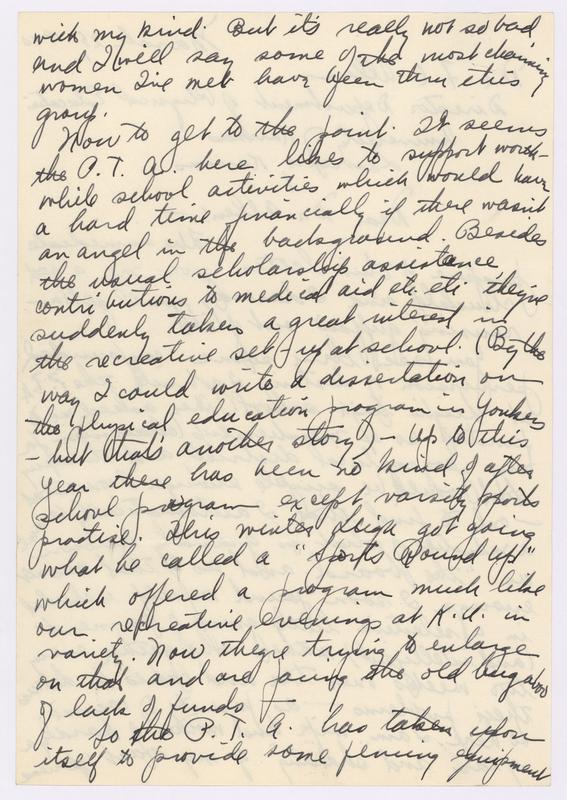 with my kind. But it's really not so bad
and I will say some of the most charming
women I've met have been thru this
group.
Now to get to the point. It seems
the P. T. A. here likes to support worth-
while school activities which would have
a hard time financially if there wasn't
an angel in the background. Besides
the usual scholarship assistance,
contributions to medical aid etc. etc. they're
suddenly taken a great interest in
the recreative set-up at school. (By the
way I could write a dissertation on
the physical education program in Yonkers
- but that's another story) - Up to this
year there has been no kind of after
school program except varsity sports
practise. This winter Leigh got going
what he called a "Sports Round Up"
which offered a program much like
our recreative evenings at K. U. in
variety. Now they're trying to enlarge
on that and are facing the old bugaboo
of lack of funds -
So the P. T. A. has taken upon
itself to provide some fencing equipment